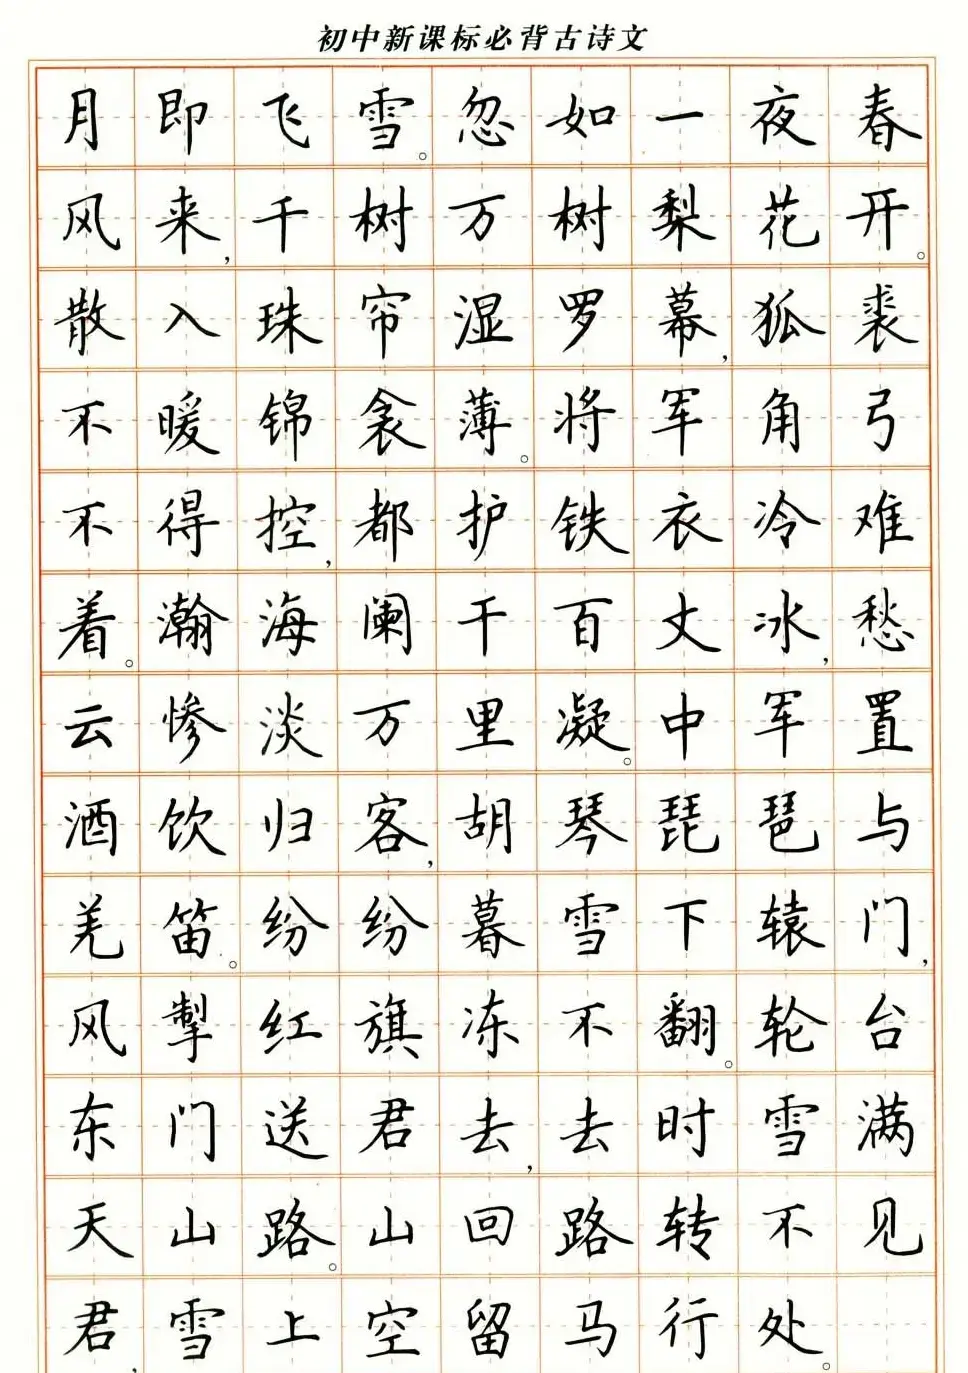 初中新课标必背古诗文
月即飞雪。忽如一夜春
风来,千树万树梨花开。
散入珠帘湿罗幕,狐裘
不暖锦衾薄。将军角弓
不得控,都护铁衣冷难
着。瀚海阑干百丈冰,愁
云惨淡万里凝。中军置
酒饮归客,胡琴琵琶与
羌笛。纷纷暮雪下辕门,
风掣红旗冻不翻。轮台
东门送君去,去时雪满
天山路。山回路转不见
君,雪上空留马行处。